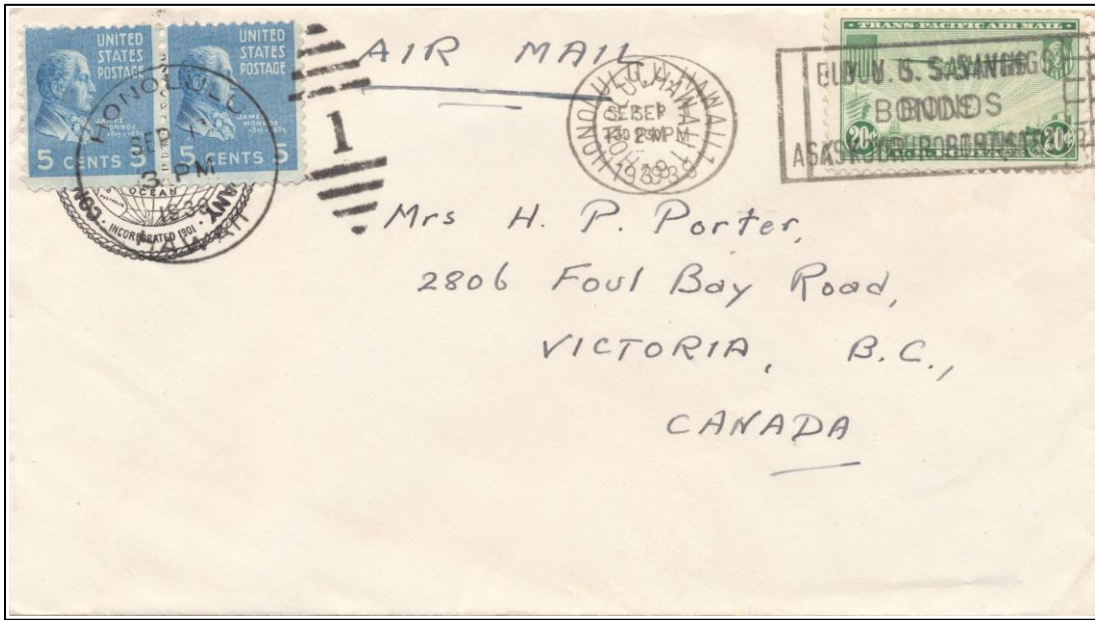 UNITED STATES POSTAGE
JAMES MONROE
5 CENTS 5
UNITED STATES POSTAGE
JAMES MONROE
5 CENTS 5
HONOLULU
SEP 1
3 PM
1939
HAWAII
OCEAN
INCORPORATED 1901
1
AIR MAIL
HONOLULU, HAWAII
SEP 1
PM
TRANS-PACIFIC AIR MAIL
20¢ 20¢
BUY U. S. SAVINGS
BONDS
ASK YOUR POSTMASTER
Mrs H. P. Porter,
2806 Foul Bay Road,
VICTORIA, B.C.,
CANADA